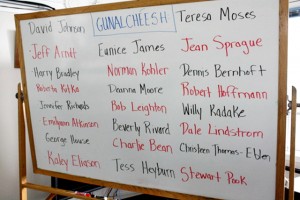 David Johnson GUNALCHLESH Teresa Moses
Jeff Arndt Eunice James Jean Sprague
Harry Bradley Norman Kohler Dennis Bernhoft
Roberta Kitka Dianna Moore Robert Hoffmann
Jennifer Richards Bob Leighton Willy Radake
Emilyann Atkinson Beverly Rivard Dale Lindstrom
George House Charlie Bean Christeen Thomas-
Kaley Eliason Tess Heyburn Stewart Pook